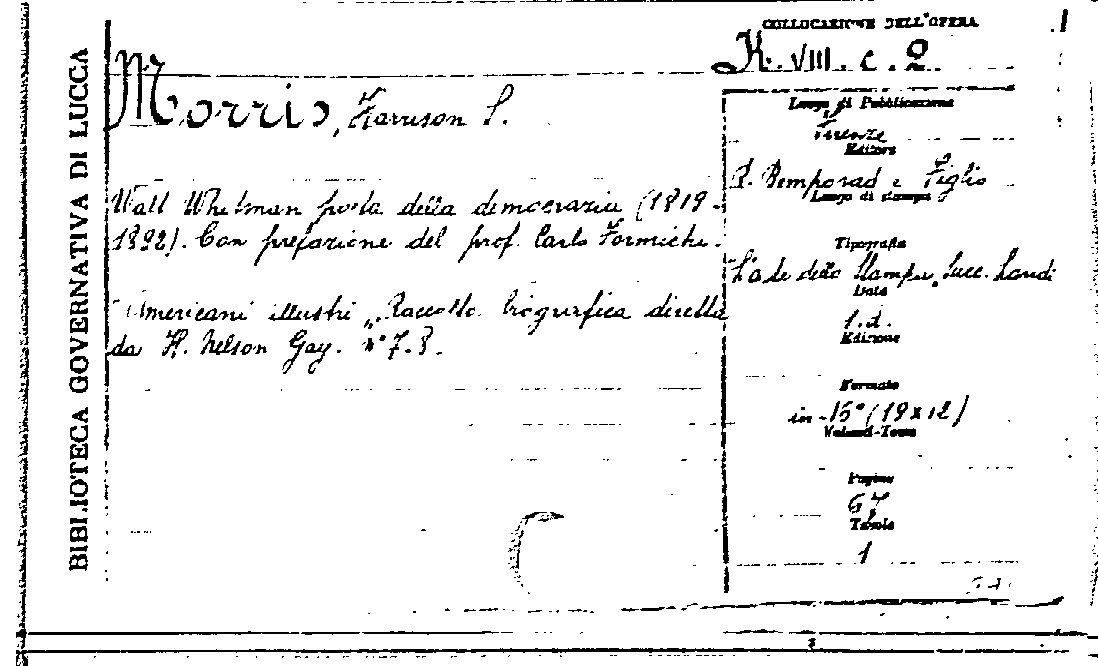 BIBLIOTECA GOVERNATIVA DI LUCCA
COLLOCAZIONE DELL'OPERA
K. VIII. c. 2.
Morris, Harrison S.
Walt Whitman poeta della democrazia (1819-
1892). Con prefazione del prof. Carlo Formichi.
"Americani illustri". Raccolta biografica diretta
da H. Nelson Gay. n° 7-8.
Luogo di Pubblicazione
Firenze
Editore
R. Bemporad e Figlio
Luogo di stampa
Tipografia
L'arte della Stampa, Succ. Landi
Data
s.d.
Edizione
Formato
in-16° (19x12)
Volumi-Tomi
Pagine
67
Tavole
1